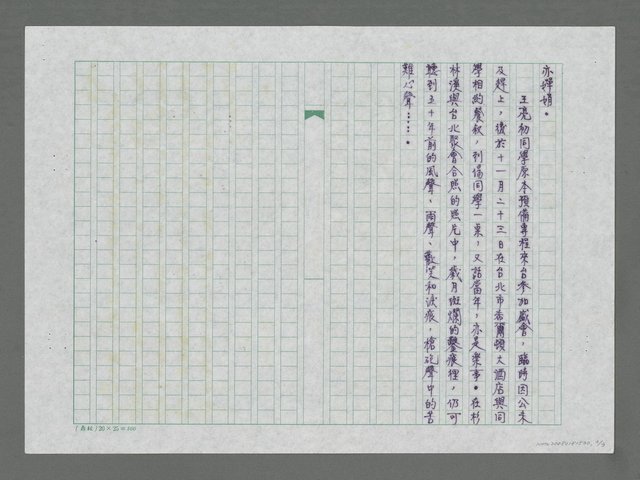 亦嬋娟。
王亮初同學原本預備專程來台參加盛會，臨時因公未
及趕上，後於十一月二十三日在台北市希爾頓大酒店與同
學相約餐敘，到場同學一桌，又話當年，亦是樂事。在杉
林溪與台北聚會合照的照片中，歲月斑斕的鑿痕裡，仍可
聽到五十年前的風聲、雨聲、歡笑和淚痕，槍砲聲中的苦
難心聲……。
20×25=500